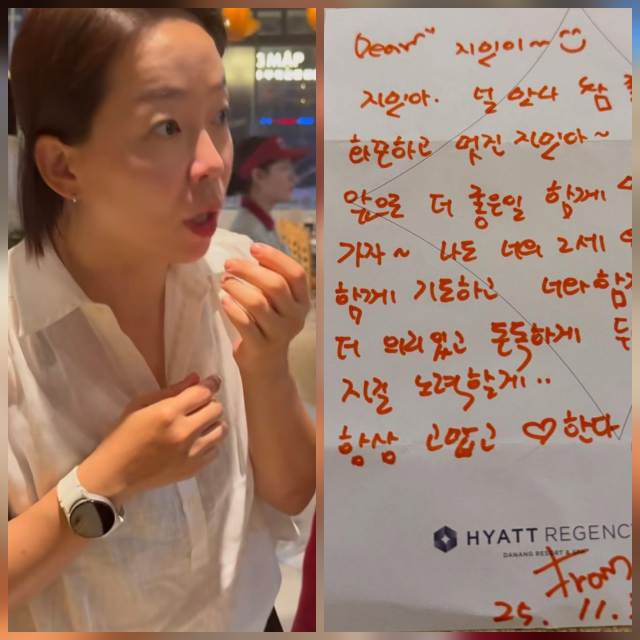 Dear" 지일이~
지일아. 널 만나 참
하고 멋진 지일아~
앞으로 더 좋은일 함께
가자~ 나는 너의 2세
함께 기도하고 너와 함께
더 의리있고 돈독하게
지걸 노력할게..
항상 고맙고 ♡한다
HYATT REGENC
DANANG RESORT & SPA
From
25. 11.